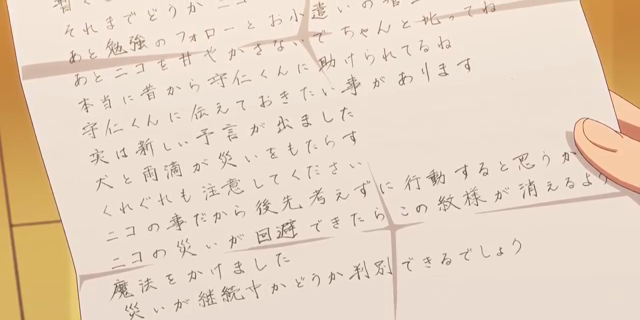 それまでどうかニコ
あと勉強のフォローとお小遣いの管
あとニコを甘やかさないでちゃんと叱ってね
本当に昔から守仁くんに助けられてるね
守仁くんに伝えておきたい事があります
実は新しい予言が出ました
犬と雨滴が災いをもたらす
くれぐれも注意してください
ニコの事だから後先考えずに行動すると思うか
ニコの災いが回避できたらこの紋様が消えるよ
魔法をかけました
災いが継続中かどうか判別できるでしょう